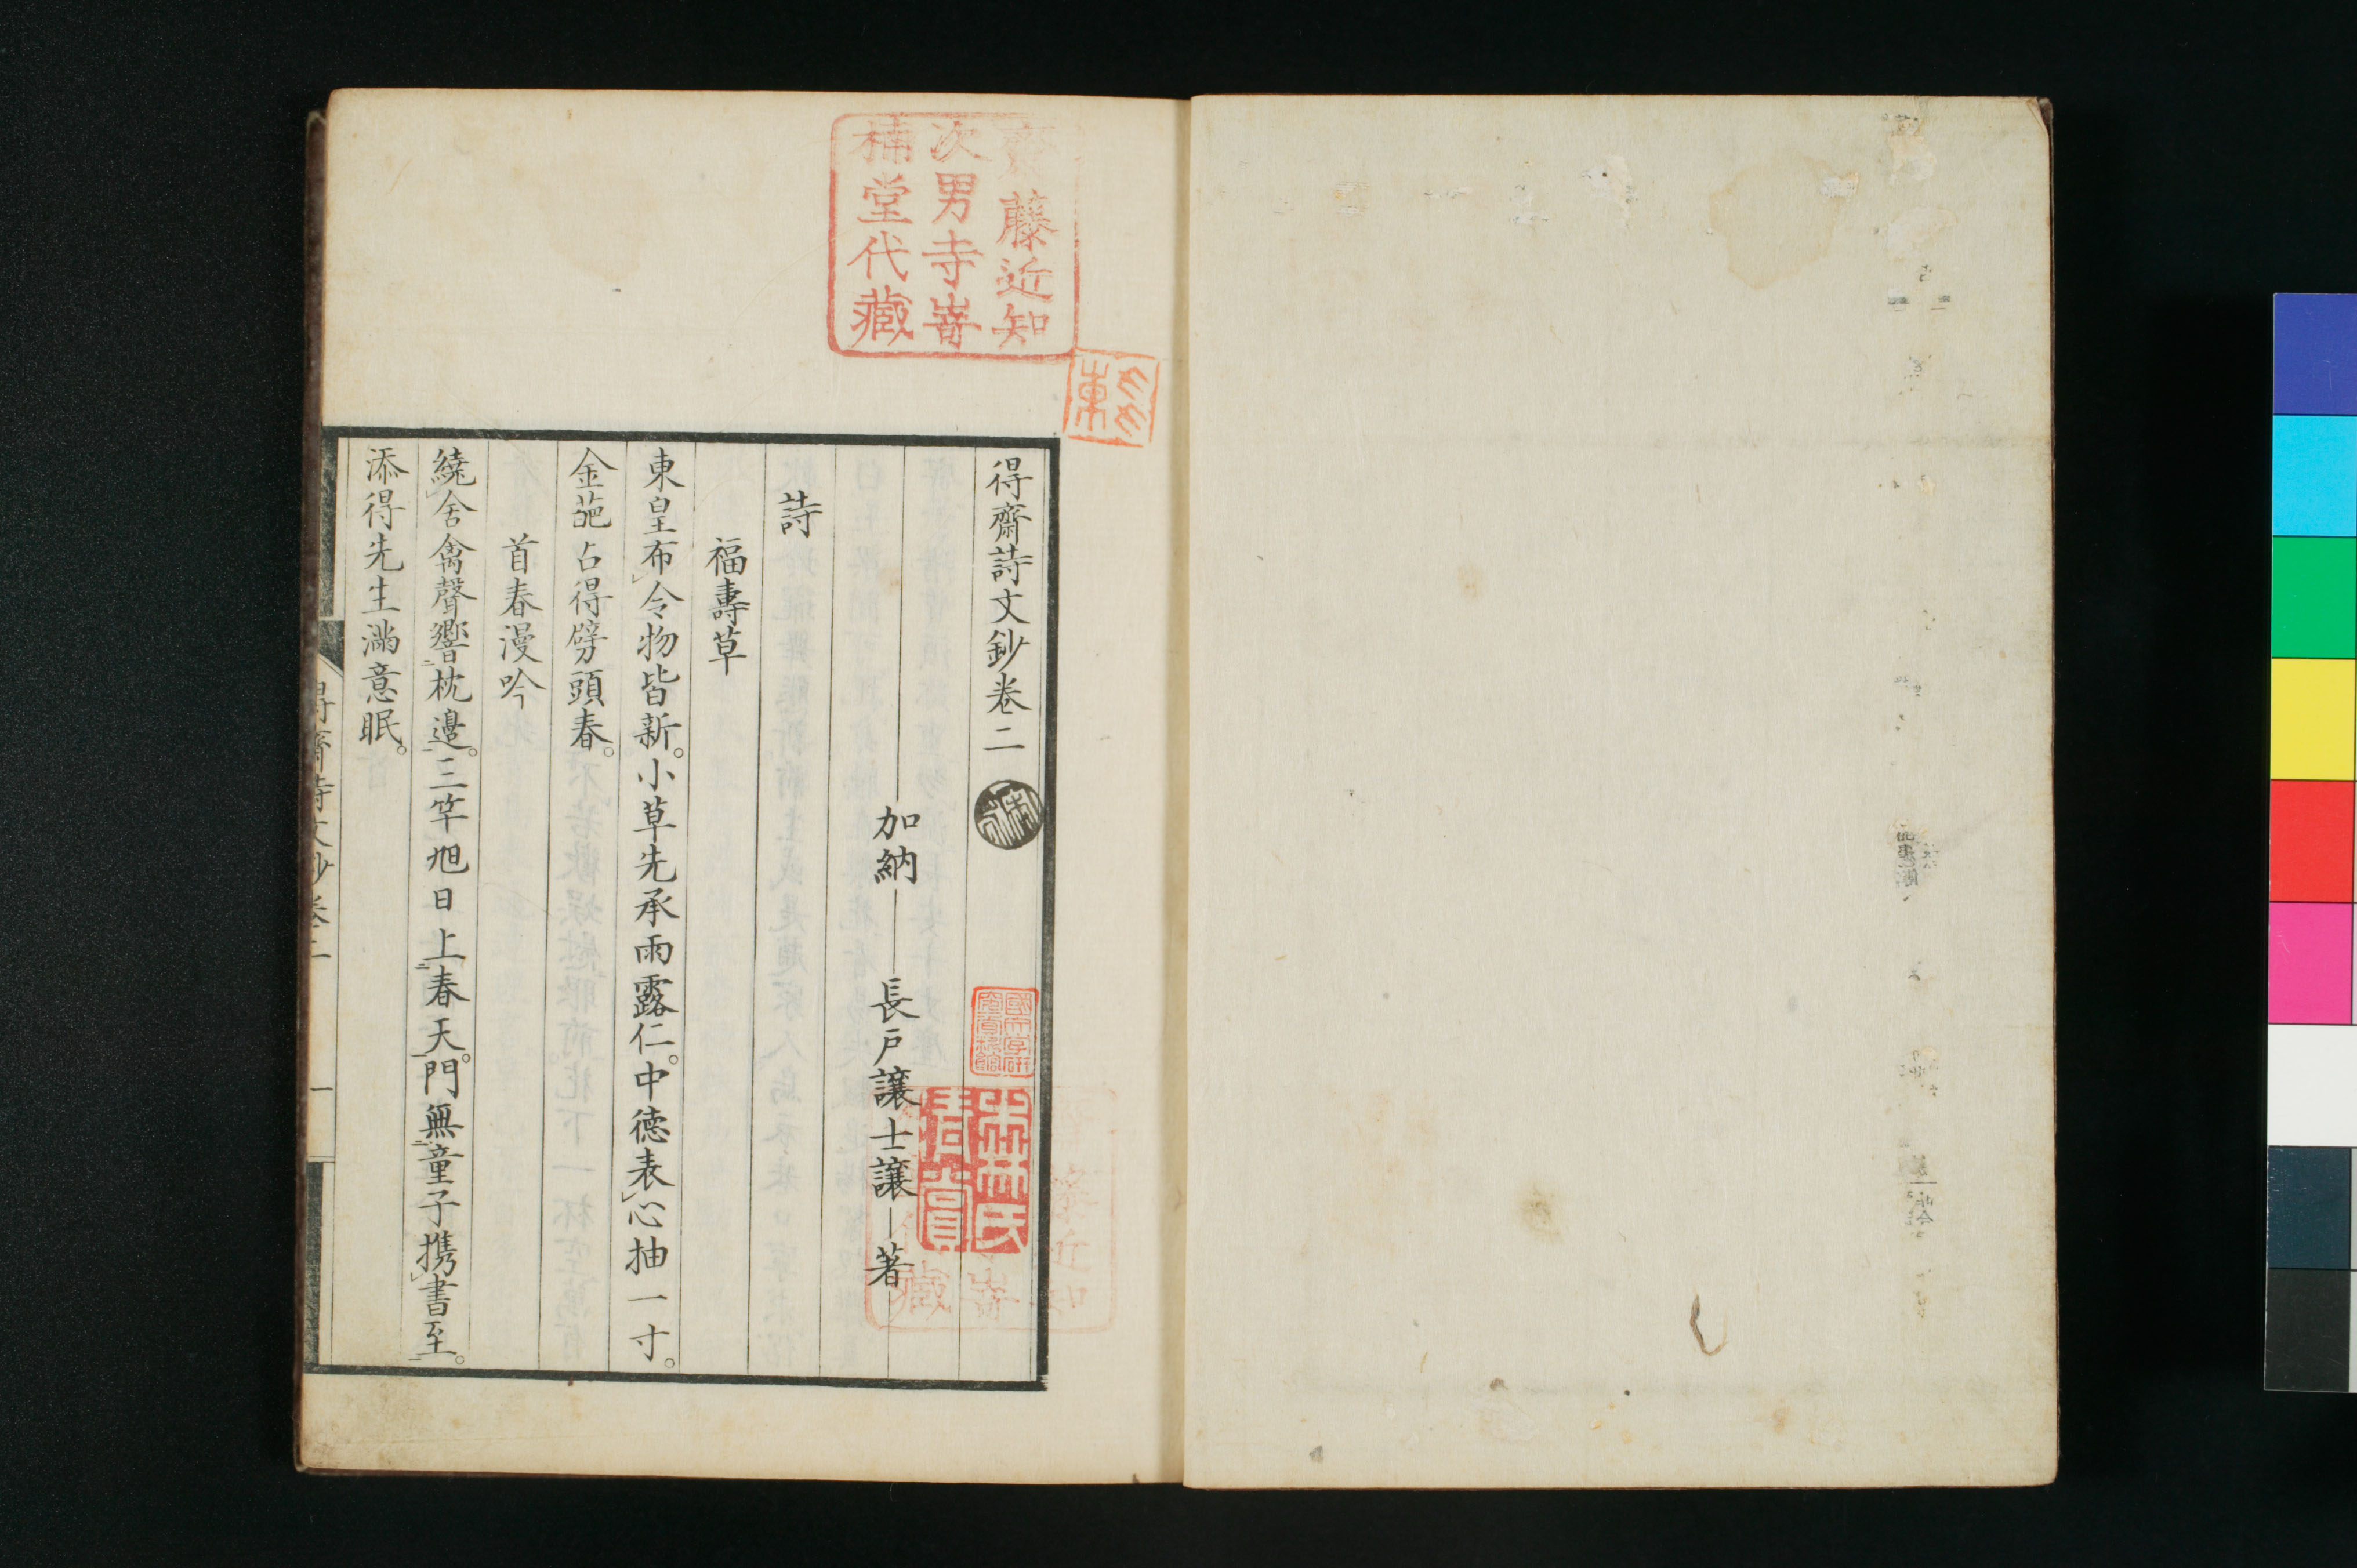 得齋詩文鈔卷二
加納 長戸讓士讓 著
詩
福壽草
東皇布令物皆新。小草先承雨露仁。中德表心抽一寸。
金葩占得劈頭春。
首春漫吟
繞舍禽聲響枕邊。三竿旭日上春天。門無童子携書至。
添得先生滿意眠。
齋藤近知
次男寺嵜
楠堂代藏
得齋詩文鈔卷二
一